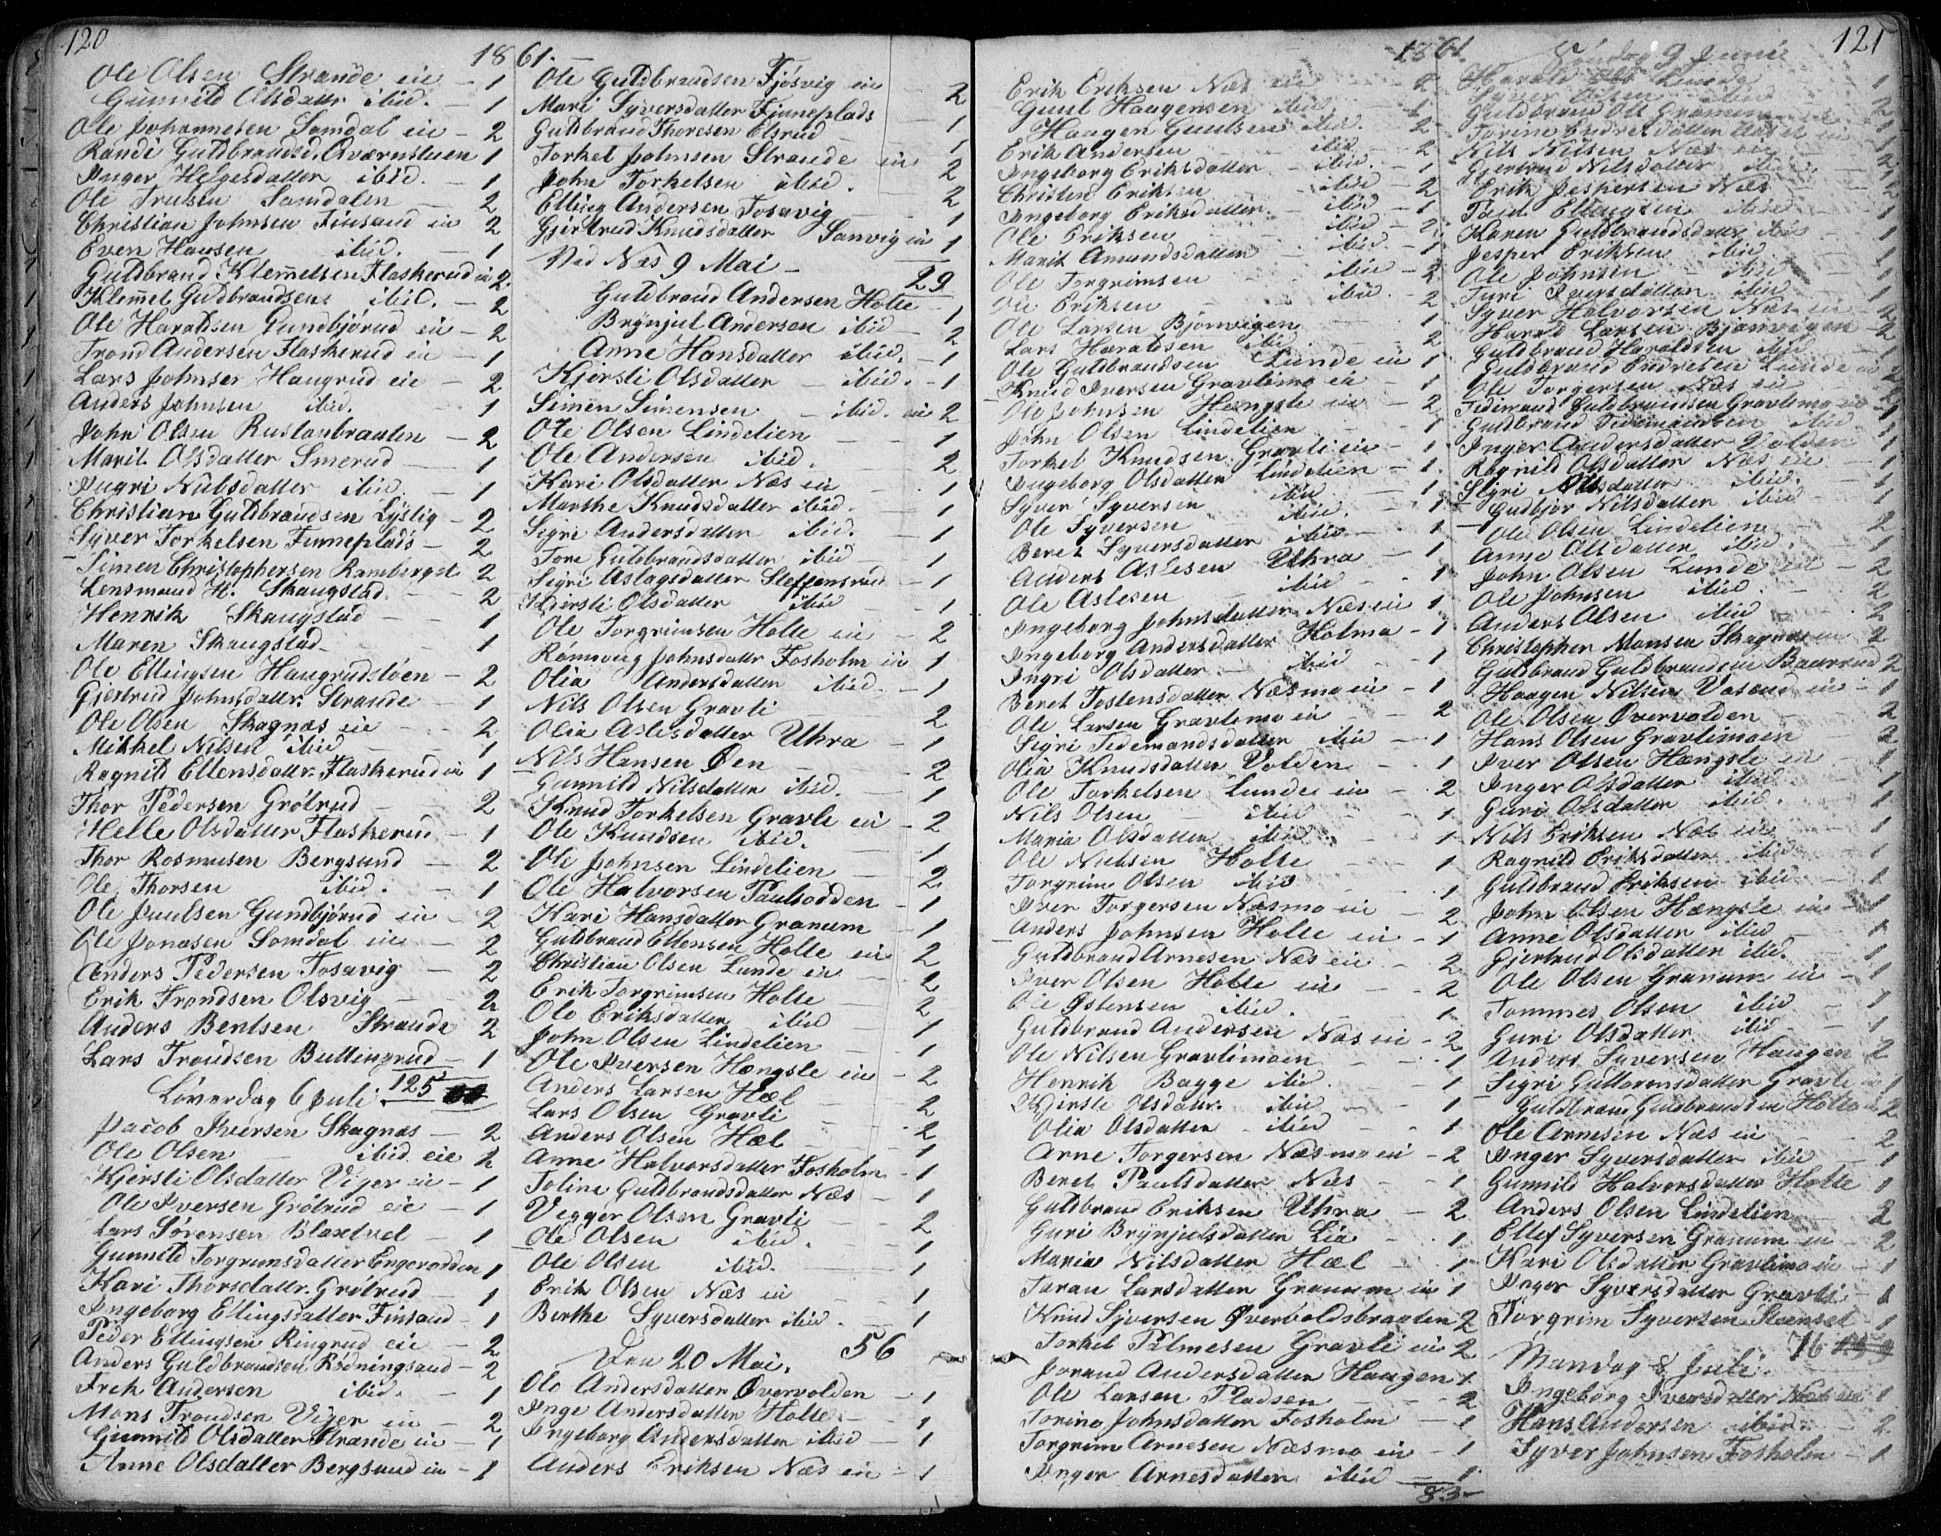 120
1861.
Ole Olsen Strande eie - 1
Gunnild Olsdatter ibid. - 1
Ole Johannesen Somdal eie - 2
Randi Guldbrandsd. Qværnstuen 1
Inger Helgesdatter ibid. - 1
Ole Truesen Samdalen - 2
Christian Johnsen Finsand eie 2
Even Hansen ibid. - 1
Guldbrand Klemmetsen Flaskerud eie 2
Klemmet Guldbrandsen ibid. - 2
Ole Haraldsen Gundbjørud eie - 2
Trond Andersen Flaskerud eie - 1
Lars Johnsen Haugrud eie - 2
Anders Johnsen ibid. - 1
John Olsen Rustanbraaten - 2
Marit Olsdatter Smerud - 1
Ingri Nubsdatter ibid. - 1
Christian Guldbrandsen Lystig - 2
Syver Torkelsen Finneplads - 2
Simen Christophersen Rambergst. 2
Lensmand H. Skaugstad - 2
Henrik Skaugstad - 1
Maren Skaugstad - 1
Ole Ellingsen Haugrudsløen - 2
Gjertrud Johnsdatr. Strande - 1
Ole Olsen Skagnæs eie - 2
Mikkel Nilsen ibid - 1
Ragnild Ellensdatr. Flaskerud eie 1
Thor Pedersen Grøtrud - 2
Helle Olsdatter Flaskerud - 1
Thor Rosmusen Bergsund - 2
Ole Thorsen ibid. - 1
Ole Paulsen Gundbjørud eie - 2
Ole Jonasen Somdal eie - 2
Anders Pedersen Tosavig - 2
Erik Trondsen Olsvig - 2
Anders Bentsen Strande 2
Lars Trondsen Buttingrud - 1
125
Løverdag 6 Juli
Jacob Iversen Skagnæs - 2
Ole Olsen ibid. eie 2
Kjersti Olsdatter Viger eie - 1
Ole Iversen Grøtrud eie - 1
Lars Sørensen Blaxtvet - 1
Gunnild Torgrimsdatter Engerodden 1
Kari Thorsdatr. Grøtrud - 1
Ingeborg Ellingsdatter Finsand - 1
Peder Ellingsen Ringrud eie - 2
Anders Guldbrandsen Rødningsand - 2
Erek Andersen ibid. - 1
Mons Trondsen Viger eie - 2
Gunnild Olsdatter Strande eie - 1
Anne Olsdatter Bergsund eie - 1
Ole Guldbrandsen Fjøsvig eie 2
Mari Syversdatter Finneplads - 1
Guldbrand Thoresen Elsrud - 1
Torkel Johnsen Strande eie 2
John Torkelsen ibid. - 2
Elling Andersen Tosavig - 1
Gjertrud Knudsdatter Sanvig eie 1
Ved Næs 9 Mai - 29
Guldbrand Andersen Holte - 1
Brynjul Andersen ibid - 2
Anne Hansdatter ibid. - 1
Kjersti Olsdatter - ibid. - 1
Simen Simensen - ibid. eie 2
Ole Olsen Lindelien - 1
Ole Andersen ibid. - 2
Kari Olsdatter Næs eie - 1
Marthe Knudsdatter ibid. - 1
Sigri Andersdatter ibid. - 1
Tore Guldbrandsdatter ibid - 1
Sigri Aslagsdatter Steffensrud - 1
Kjersti Olsdatter ibid - 1
Ole Torgrimsen Holte eie - 2
Romoug Johnsdatr Fosholm eie 1
Olia Andersdatter ibid. - 1
Nils Olsen Gravli - 2
Olia Aslesdatter Uhra - 1
Nils Hansen Øen - 2
Gunnild Nilsdatter ibid. 1
Knud Torkelsen Gravli eie - 2
Ole Knudsen ibid. - 1
Ole Johnsen Lindelien - 2
Ole Halvorsen Paulsodden - 1
Kari Hansdatter Granum - 1
Guldbrand Ellensen Holte eie 2
Christian Olsen Lunde eie - 2
Erik Torgrimsen Holte - 2
Ole Eriksdatter ibid - 1
John Olsen Lindelien - 1
Ole Iversen Hængsle eie - 2
Anders Larsen Hæl - 2
Lars Olsen Gravli - 2
Anders Olsen Hæl - 1
Anne Halvorsdatter Fosholm - 1
Toline Guldbrandsdatter Næs - 1
Vegger Olsen Gravli - 2
Ole Olsen ibid. - 1
Ole Olsen ibid. - 1
Erik Olsen Næs eie - 1
Berthe Syversdatter ibid. - 1
Den 20 Mai. 56
Olo Andersdatter Øvervolden - 1
Inge Andersdatter Holte - 1
Ingeborg Andersdatter ibid - 1
Anders Eriksen Næs eie - 1
1861.
121
Erik Eriksen Næs eie - 2
Guul Haagensen ibid - 1
Haagen Guulsen ibid. 2
Erik Andersen - ibid - 2
Ingeborg Eriksdatter - ibid. - 1
Christen Eriksen - ibid - 2
Ingeborg Eriksdatter - ibid - 1
Ole Eriksen - ibid - 2
Marit Amundsdatter - ibid. - 1
Ole Torgrimsen - ibid - 2
Ole Eriksen - ibid. - 2
Ole Larsen Bjønvigen - 1
Lars Haraldsen ibid - 2
Ole Guldbrandsen Lunde eie 1
Knud Iversen Gravlimo eie - 1
Ole Johnsen Hængsle eie - 2
John Olsen Lindelien - 1
Torkel Knudsen Gravli eie - 1
Ingeborg Olsdatter Lindelien - 1
Syver Syversen ibid - 1
Ole Syversen ibid. - 1
Beret Syversdatter ibid - 1
Anders Aslesen Uhra - 1
Ole Aslesen ibid - 1
Ingeborg Johnsdatter Næs eie 1
Ingeborg Andersdatter Holma - 1
Ingri Olsdatter - ibid - 1
Beret Tostensdatter Næsmo eie - 1
Ole Larsen Gravlimo eie - 2
Sigri Tedemandsdatter ibid - 1
Olia Knudsdatter Volden - 1
Ole Torkelsen Lunde eie - 2
Nils Olsen ibid - 1
Maria Olsdatter ibid - 1
Ole Nielsen Holte - 1
Torgrim Olsen ibid - 1
Iver Torgersen Næsmo eie - 2
Anders Johnsen Holte eie - 1
Guldbrand Arnesen Næs eie - 2
Iver Olsen Holte eie - 2
Ole Østensen ibid. - 1
Guldbrand Andersen Næs eie - 2
Ole Nilsen Gravlimoen - 1
Henrik Bagge ibid. - 1
Kjersti Olsdatr. ibid - 1
Olia Olsdatter - ibid - 1
Arne Torgersen Næsmo eie - 2
Beret Paulsdatter Næs - 1
Guldbrand Eriksen Uhra - 2
Guri Brynjulsdatter Lia - 1
Maria Nilsdatter Hæl - 1
Taran Larsdatter Granum eie 1
Knud Syversen Øverboldsbraaten 2
Torkel Palmesen Gravli eie 2
Jorand Andersdatter Haagen 1
Ole Larsen Pladsen - 2
Torine Johnsdatter Fosholm - 1
Torgrim Arnesen Næsmo eie - 1
Inger Arnesdatter ibid - 1
83
Søndag 9 Junie
Harald Lunde 1
Syver Olsen ibid 1
Guldbrand Ols Granum 2
Nils Nilsen Næs eie - 2
Gjertrud Nilsdatter ibid 1
Erik Jespersen Næs
ibid - 1
Karen Guldbrandsdatr ibid - 1
Jesper Eriksen ibid 1
Ole Johnsen - ibid 1
Turi Iversdatter ibid 1
Syver Halvorsen Næs eie - 2
Harald Larsen Bjønvigen - 2
Guldbrand Haraldsen ibid - 1
Guldbrand Endresen Lunde eie 2
Ole Torgersen Næs eie - 2
Tedemand Guldbrandsen Gravlimo eie 2
Guldbrand Tedemandsen ibid. 1
Inger Andersdatter Volden 1
Ragnild Olsdatter Næs eie - 1
Sigri Nilsdatter ibid. - 1
Gudbjør Nilsdatter ibid - 1
Ole Olsen Lindelien - 2
Anne Olsdatter ibid. 1
John Olsen Lunde eie - 2
Ole Johnsen ibid. - 2
Anders Olsen ibid - 2
Christopher Monsen Skagnæs eie 2
Guldbrand Guldbrandsen Baarrud 2
Haagen Nilsen Vasend eie - 1
Ole Olsen Øvervolden - 2
Hans Olsen Gravlimoen 2
Iver Olsen Hængsle eie - 1
Inger Olsdatter ibid - 1
Guri Olsdatter ibid. - 1
Nils Eriksen Næs eie - 1
Ragnild Eriksdatter ibid - 1
Guldbrand Eriksen ibid - 1
John Olsen Hængsle eie - 1
Anne Olsdatter ibid - 1
Gjertrud Olsdatter ibid. - 1
Ole Olsen Granum eie - 1
Tommes Olsen ibid - 1
Guri Olsdatter ibid - 1
Anders Syversen Haagen 2
Sigri Guttormsdatter Gravli eie 1
Guldbrand Guldbrandsen Holte eie 2
Ole Arnesen Næs eie - 2
Inger Syversdatter ibid - 1
Gunnild Halvorsdatter Holte 1
Anders Olsen Lindelien - 2
Ellef Syversen Granum eie - 2
Kari Olsdatter Gravlimo eie - 1
Inger Syversdatter Gravli - 1
Torgrim Syversen - 1
76
Mandag 8 Juli.
Ingeborg Iversdatter Næs eie 1
Hans Andersen ibid. - 2
Syver Johnsen Fosholm - 1